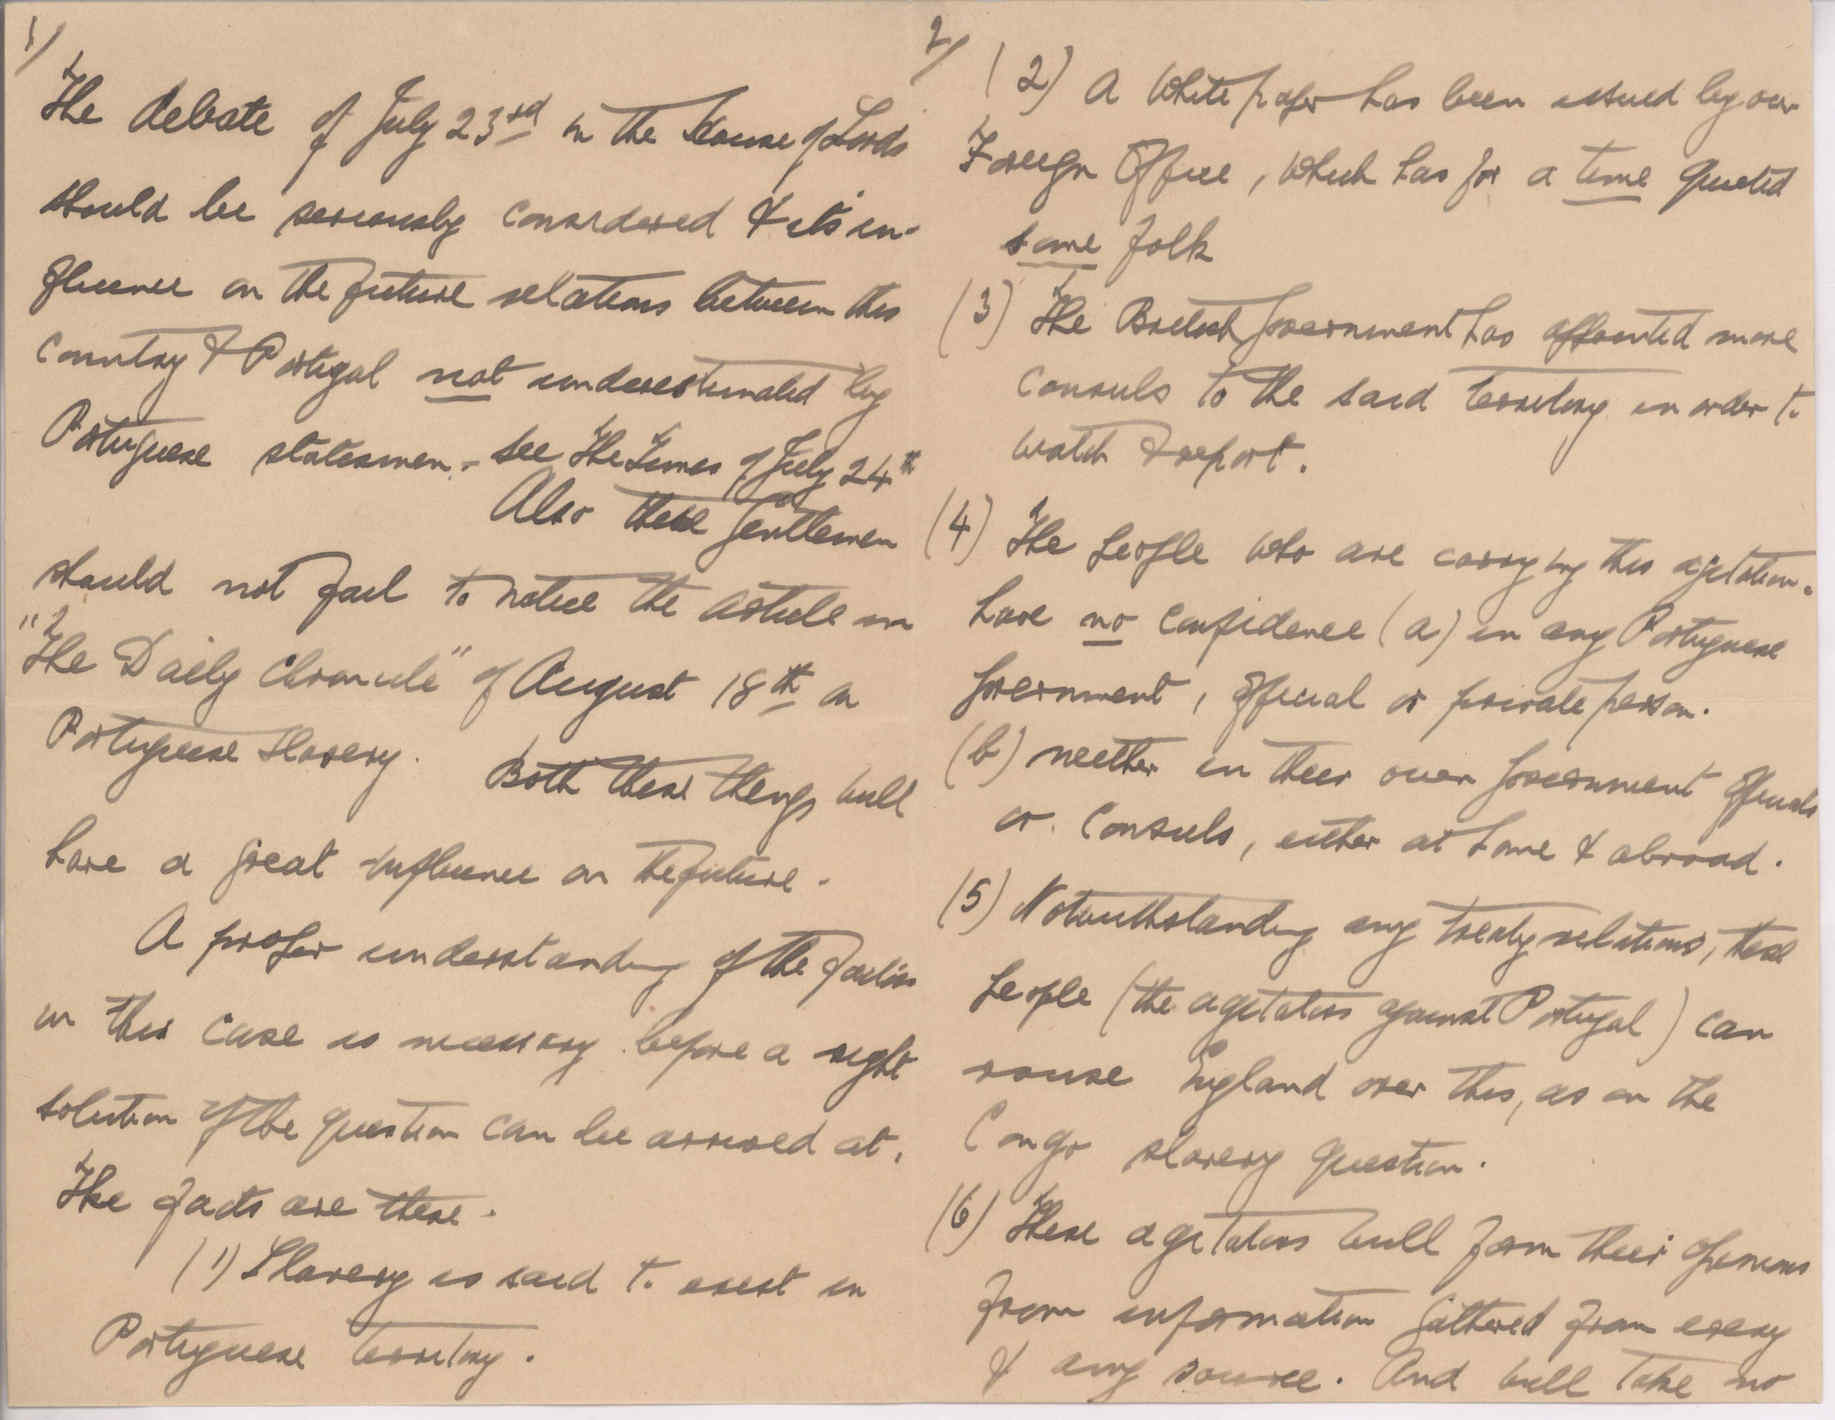 1/
The debate of July 23rd in the House of Lords
should be seriously considered & its in-
fluence on the future relations between this
country & Portugal not underestimated by
Portuguese statesmen. - see The Times of July 24th
Also these gentlemen
should not fail to notice the article in
"The Daily Chronicle" of August 18th on
Portuguese Slavery. Both these things will
have a great influence on the future.
A proper understanding of the parties
in this case is necessary before a right
solution of the question can be arrived at.
The facts are these.
(1) Slavery is said to exist in
Portuguese territory.
2/
(2) A White paper has been issued by our
Foreign Office, which has for a time quieted
some folk
(3) The British Government has appointed more
Consuls to the said territory in order to
watch & report.
(4) The people who are carrying this agitation.
have no confidence (a) in any Portuguese
Government, official or private person.
(b) neither in their own Government Officials
or Consuls, either at home & abroad.
(5) Notwithstanding any treaty relations, these
people (the agitators against Portugal) can
rouse England over this, as on the
Congo slavery question.
(6) These agitators will form their opinions
from information gathered from every
& any source. And will take no